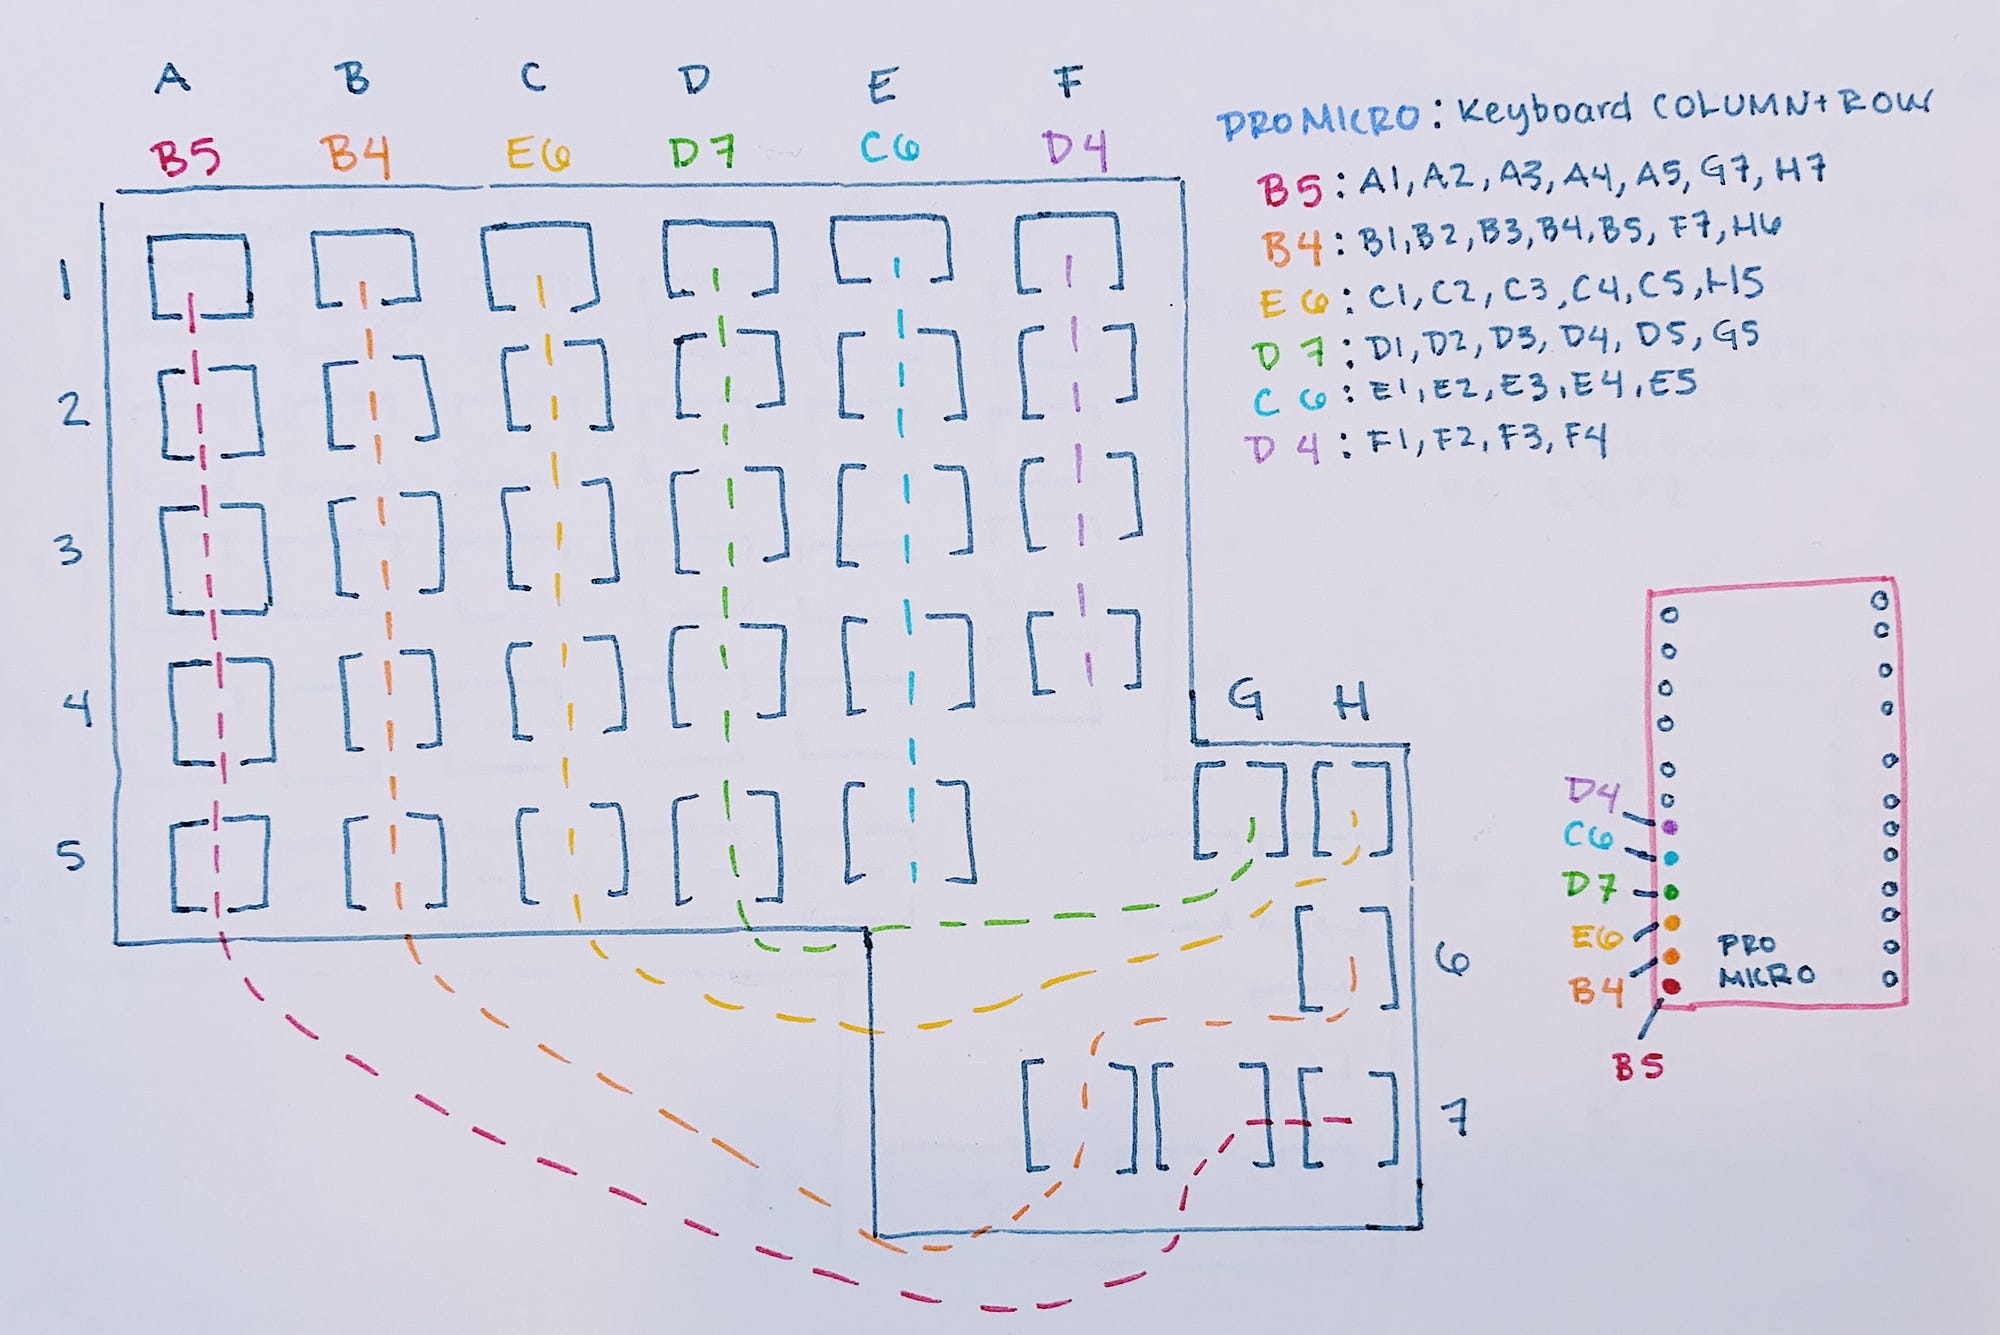 A B C D E F
B5 B4 E6 D7 C6 D4
PRO MICRO: Keyboard COLUMN+ROW
B5: A1, A2, A3, A4, A5, G7, H7
B4: B1, B2, B3, B4, B5, F7, H6
E6: C1, C2, C3, C4, C5, H5
D7: D1, D2, D3, D4, D5, G5
C6: E1, E2, E3, E4, E5
D4: F1, F2, F3, F4
1
2
3
4
5
G H
6
7
D4
C6
D7
E6
B4
B5
PRO
MICRO